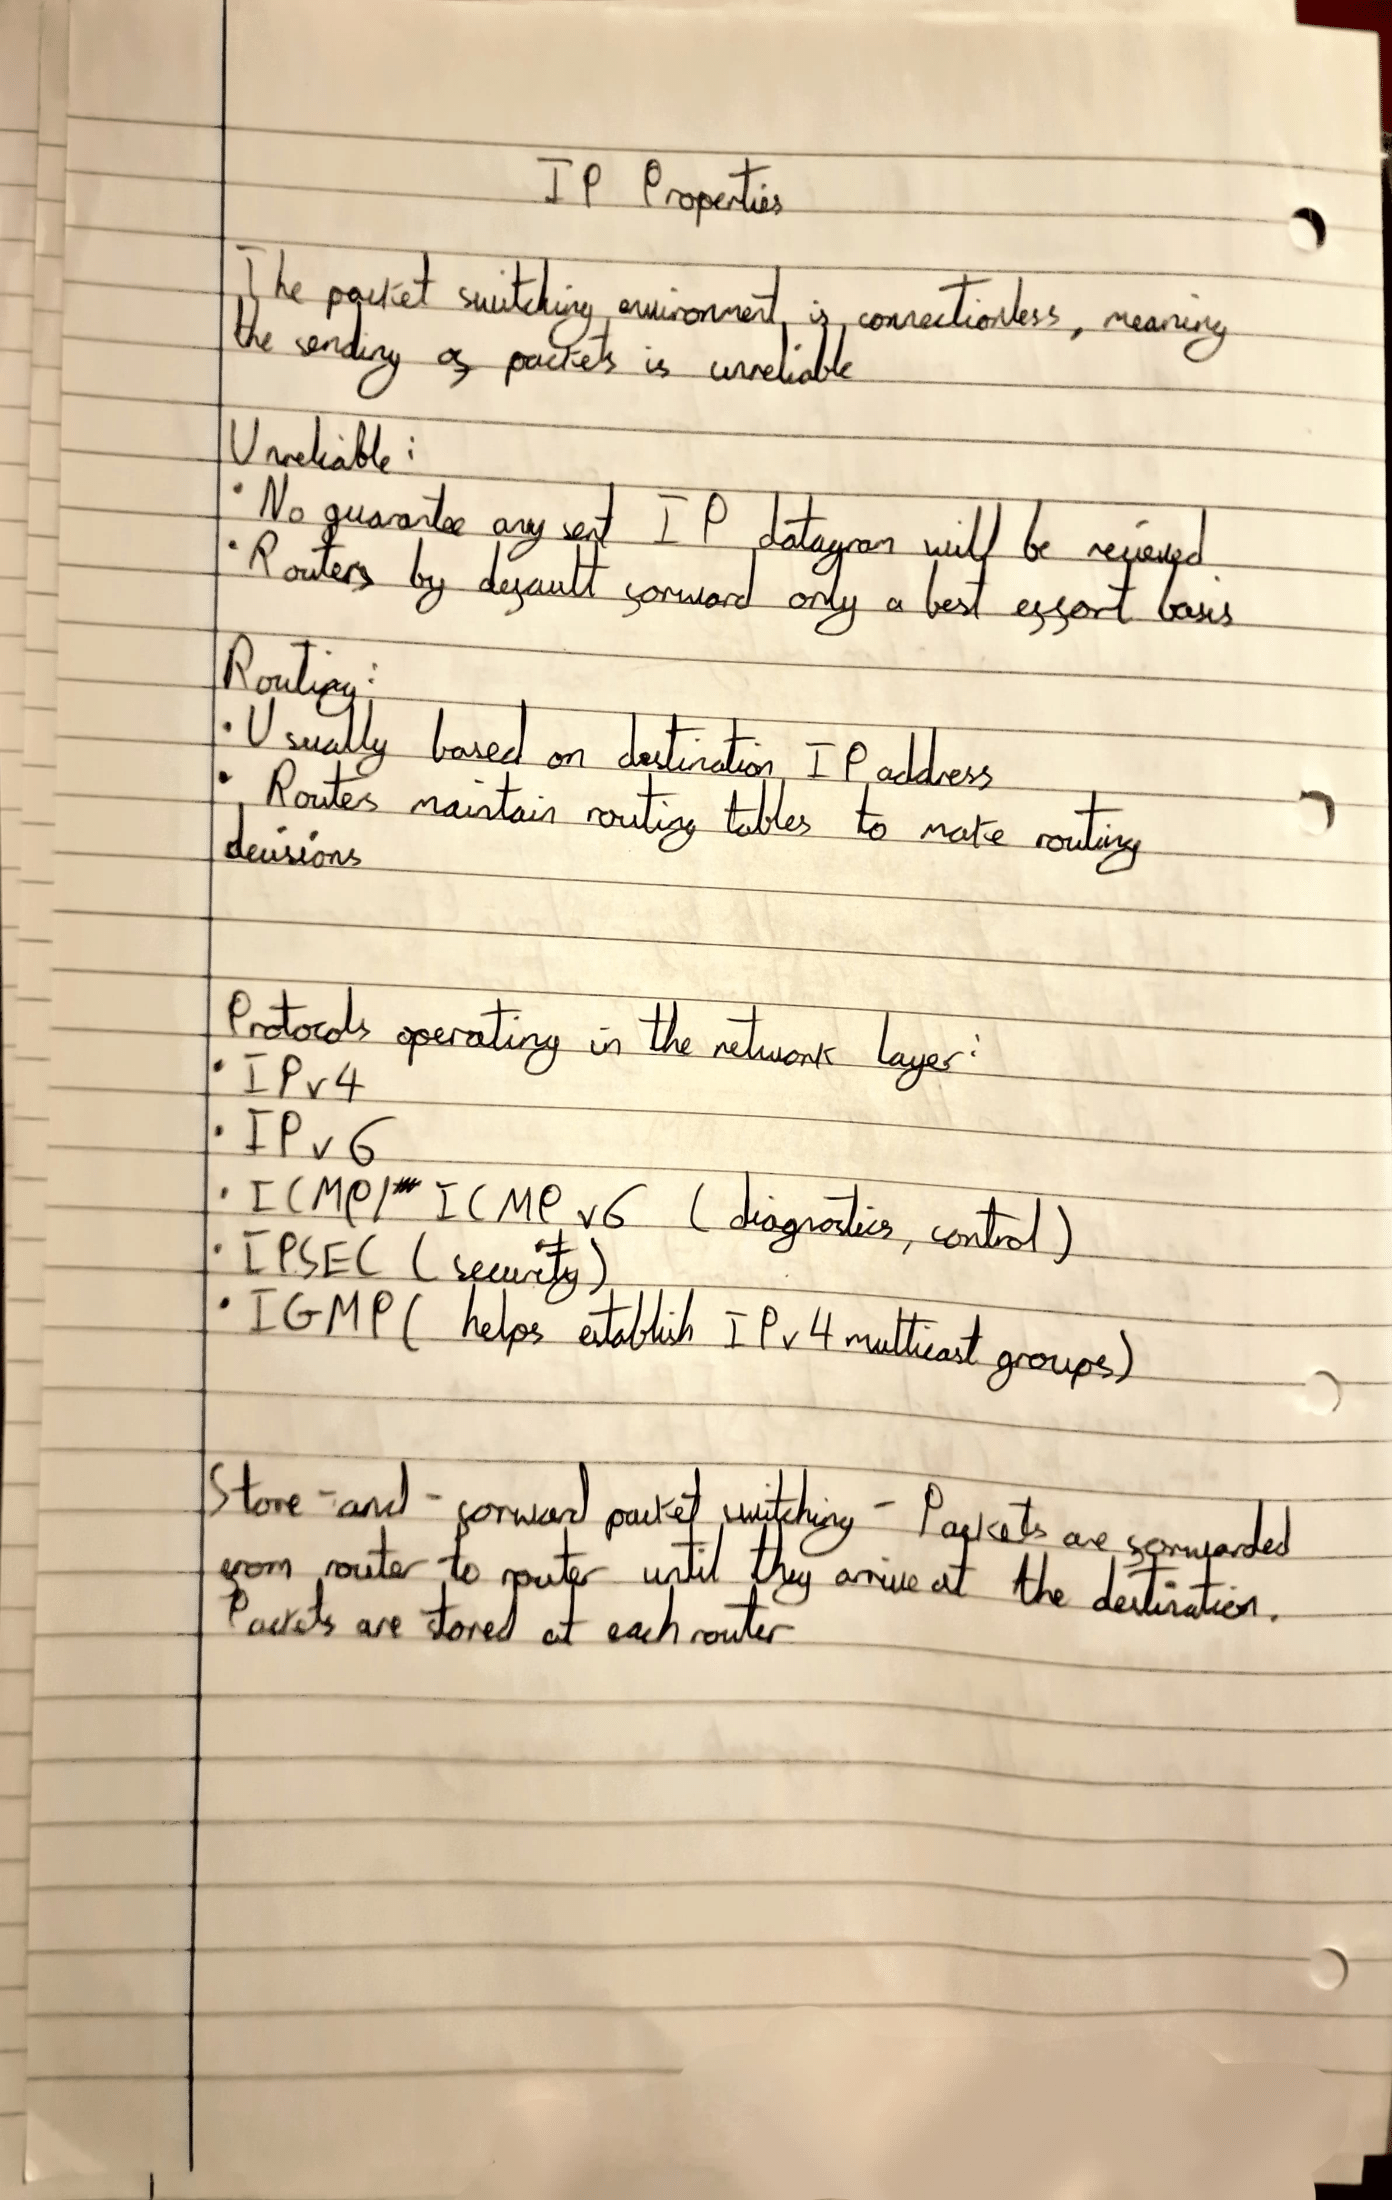 IP Properties
The packet switching environment is connectionless, meaning
the sending of packets is unreliable
Unreliable:
• No guarantee any sent IP datagram will be recieved
• Routers by default forward only a best effort basis
Routing:
• Usually based on destination IP address
• Routers maintain routing tables to make routing
decisions
Protocols operating in the network layer:
• IPv4
• IPv6
• ICMP/ ICMPv6 (diagnostics, control)
• IPSEC (security)
• IGMP ( helps establish IPv4 multicast groups)
Store-and-forward packet switching - Packets are forwarded
from router to router until they arrive at the destination.
Packets are stored at each router